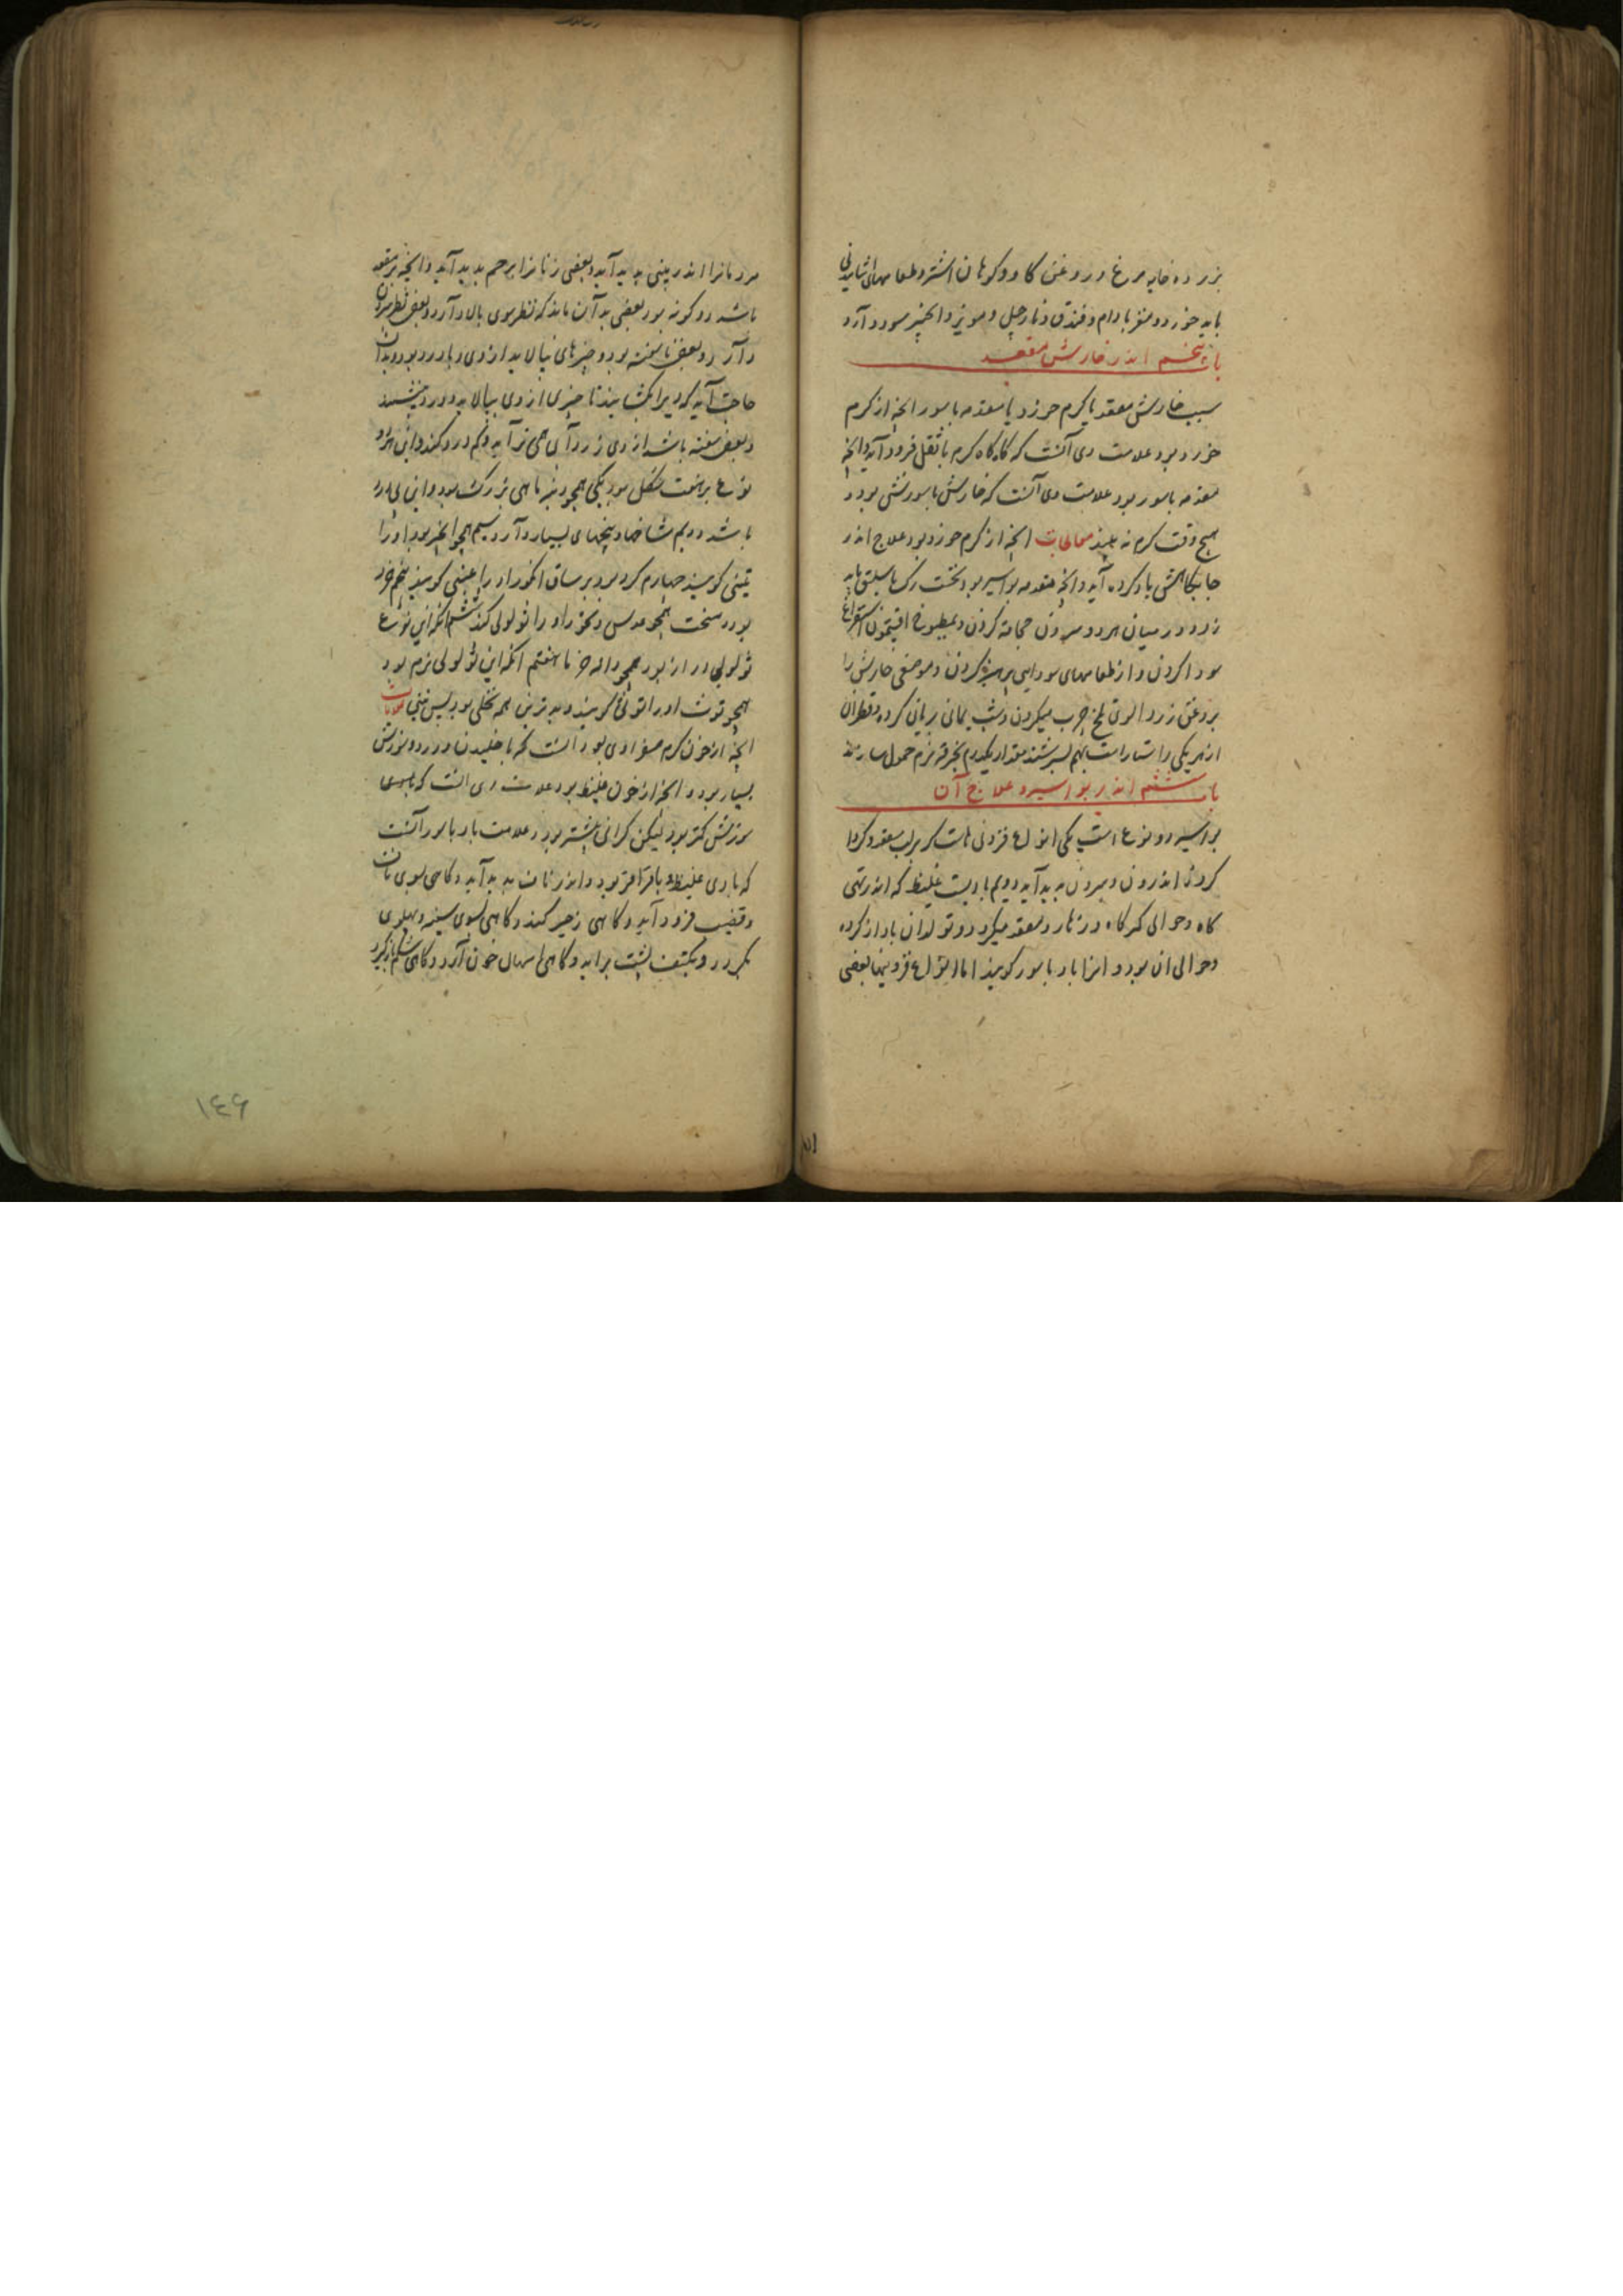 زرده خایه مرغ و روغن کاو و کوهان اشتر و طعامهای
باید خورد و مغز بادام و فندق و نارجیل و مویز و انجیر سود دارد
باب پنجم اندر خارش مقعد
سبب خارش مقعد یا کرم خرد یا مقدمه باسور انچه از کرم
خرد بود علامت وی آنست که گاه گاه کرم با ثفل فرود آید و انچه
مقدمه باسور بود علامت وی آنست که خارش با سوزش بود و
هیچ وقت کرم نه بیند معالجات انچه از کرم خرد بود علاج اندر
جایکاهش یاد کرده آید و انچه مقدمه بواسیر بود نخست رک باسلیق باید
زد و در میان هر دو سرون حجامة کردن و بمطبوخ افتیمون استفراغ
سودا کردن و از طعامهای سودایی پرهیز کردن و موضع خارش را
بروغن زردالوی تلخ چرب میکردن و شب یمانی بریان کرده و قطران
از هر یکی راستاراست بهم بسرشند مقدار یکدرم بخرقه نرم حمول سازند
باب ششم اندر بواسیر و علاج آن
بواسیر دو نوع است یکی انواع فزونی هاست که بر لب مقعد و کرد
کرد اندرون و بیرون پدید آید دویم بادیست غلیظ که اندر تهی
کاه و حوالی کمرکاه و زهار و مقعد میکردد و تولد آن باد از کرده
و حوالی ان بود و انرا باد باسور کویند اما انواع فزونیها بعضی
مردمانرا اندر بینی پدید آید و بعضی زنانرا بر رحم پدید آید و انچه بر مقعد
باشد دو کونه بود بعضی بدان ماند که نظر سوی بالا دارد و بعضی نظر
دارد و بعضی ناسفته بود و چیزهای نپالاید از وی و با درد بود و بدان
حاجت آید که ویرا بکشایند تا چیزی از وی بپالاید و درد بنشیند
و بعضی سفته باشد از وی زردآبی همی تراید و کم درد کند و این هر دو
نوع بر هفت شکل بود یکی همچو بزرک بود و این
باشد دویم شاخها و بیخهای بسیار دارد سیم همچو انجیر بود او را
تینی کویند چهارم کرد بود برسان انکور او را عنبی کویند پنجم خرد
بود و سخت همچو عدس و نخود او را ثولولی کویند ششم انکه این نوع
ثولولی دراز بود همچو دانه خرما هفتم انکه این ثولولی نرم بود
همچو توت او را توثی کویند و بدترین همه نخلی بود پس تینی علامات
انچه از خون کرم صفراوی بود انست که با خلیدن و درد و سوزش
بسیار بود و انچه از خون غلیظ بود علامت وی انست که
سوزش کمتر بود لیکن کرانی بیشتر بود و علامت باد باسور آنست
که بادی غلیظ با قراقر بود و اندر ناف پدید آید و کاهی سوی
و قضیب فرود آید و کاهی زحیر کند و کاهی بسوی سینه و پهلوی
بکردد و بکتف پشت براید و کاهی اسهال خون آرد و کاهی شکم
۱۴۶